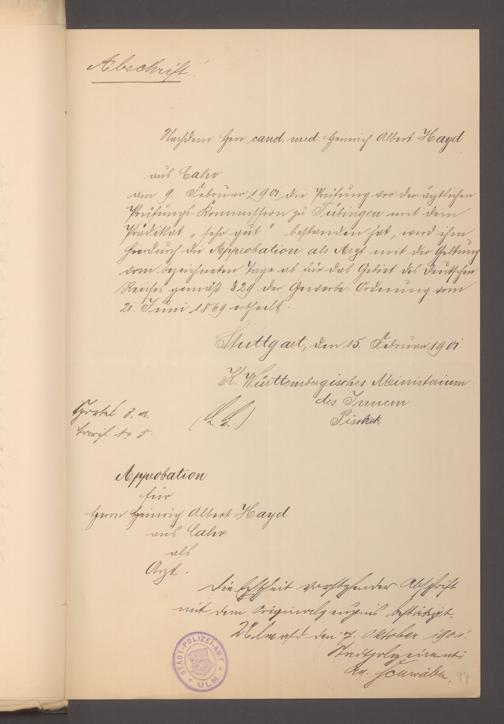 Abschrift.
Nachdem Herr cand. med. Heinrich Albert Hayd
aus Calw
am 9. Februar 1901 die Prüfung vor der ärztlichen
Prüfungs-Kommission zu Tübingen mit dem
Prädikat „sehr gut" bestanden hat, wird ihm
hierdurch die Approbation als Arzt mit der Geltung
vom bezeichneten Tage ab für das Gebiet des Deutschen
Reiches gemäß § 29 der Gewerbe-Ordnung vom
21. Juni 1869 ertheilt.
Stuttgart, den 15. Februar 1901
K. Württembergisches Ministerium
des Innern
Pischek
(L. S.)
Sportel
Tarif No 5.
Approbation
für
Herrn Heinrich Albert Hayd
aus Calw
als
Arzt.
Die Echtheit vorstehender Abschrift
mit dem Originalzeugnis bestätigt.
Ulm a/d den 7. Oktober
Stadtpolizeiamt
Schwäble
STADT-POLIZEI-AMT ULM